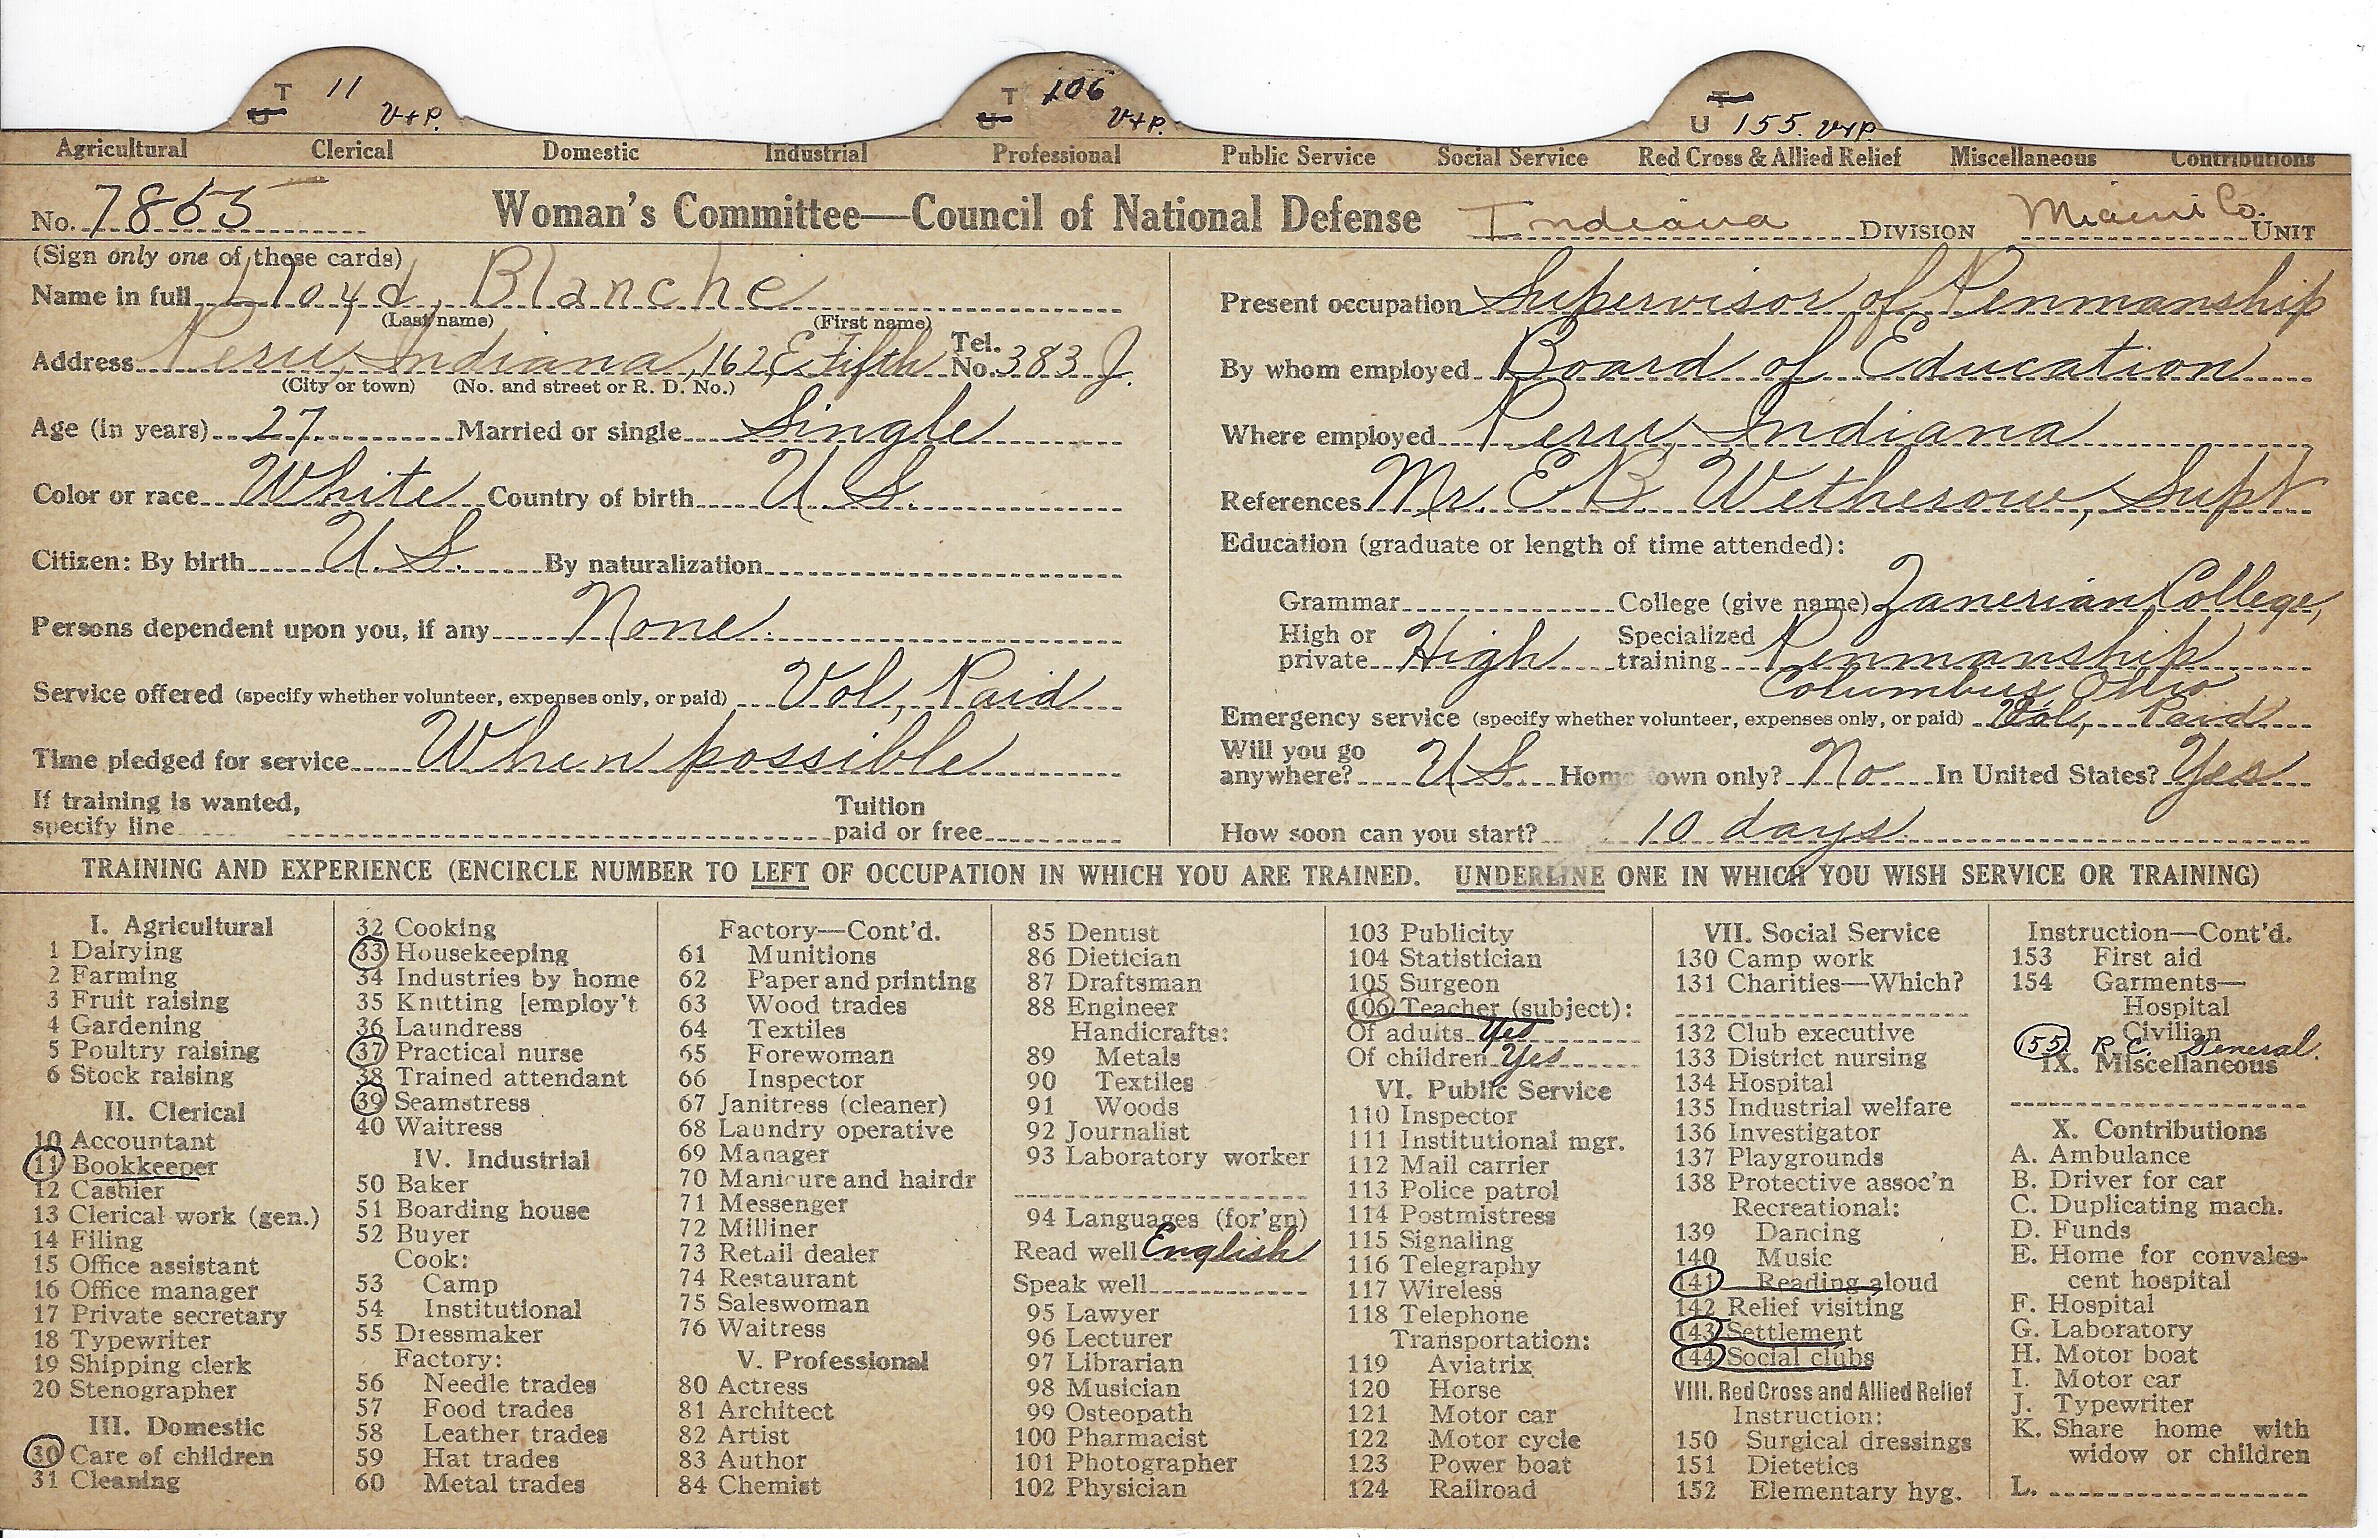 T 11 V+P.
U
T 106 V+P.
U
T
U 155. V+P.
Agricultural Clerical Domestic Industrial Professional Public Service Social Service Red Cross & Allied Relief Miscellaneous Contributions
No. 7865 Woman's Committee—Council of National Defense Indiana DIVISION Miami Co. UNIT
(Sign only one of these cards)
Name in full Lloyd, Blanche
(Last name) (First name)
Address Peru, Indiana, 162 E Fifth Tel. No. 383 J.
(City or town) (No. and street or R. D. No.)
Age (in years) 27 Married or single Single
Color or race White Country of birth U. S.
Citizen: By birth U. S. By naturalization
Persons dependent upon you, if any None.
Service offered (specify whether volunteer, expenses only, or paid) Vol, Paid
Time pledged for service When possible
If training is wanted,
specify line
Tuition
paid or free
Present occupation Supervisor of Penmanship
By whom employed Board of Education
Where employed Peru, Indiana
References Mr. E. B. Wetherow, Supt
Education (graduate or length of time attended):
Grammar College (give name) Zanerian College,
High or
private High
Specialized
training Penmanship
Columbus, Ohio
Emergency service (specify whether volunteer, expenses only, or paid) Vol, Paid
Will you go
anywhere? U S. Home town only? No In United States? Yes
How soon can you start? 10 days.
TRAINING AND EXPERIENCE (ENCIRCLE NUMBER TO LEFT OF OCCUPATION IN WHICH YOU ARE TRAINED. UNDERLINE ONE IN WHICH YOU WISH SERVICE OR TRAINING)
I. Agricultural
1 Dairying
2 Farming
3 Fruit raising
4 Gardening
5 Poultry raising
6 Stock raising
II. Clerical
10 Accountant
11 Bookkeeper
12 Cashier
13 Clerical work (gen.)
14 Filing
15 Office assistant
16 Office manager
17 Private secretary
18 Typewriter
19 Shipping clerk
20 Stenographer
III. Domestic
30 Care of children
31 Cleaning
32 Cooking
33 Housekeeping
34 Industries by home
35 Knitting [employ't
36 Laundress
37 Practical nurse
38 Trained attendant
39 Seamstress
40 Waitress
IV. Industrial
50 Baker
51 Boarding house
52 Buyer
Cook:
53 Camp
54 Institutional
55 Dressmaker
Factory:
56 Needle trades
57 Food trades
58 Leather trades
59 Hat trades
60 Metal trades
Factory—Cont'd.
61 Munitions
62 Paper and printing
63 Wood trades
64 Textiles
65 Forewoman
66 Inspector
67 Janitress (cleaner)
68 Laundry operative
69 Manager
70 Manicure and hairdr
71 Messenger
72 Milliner
73 Retail dealer
74 Restaurant
75 Saleswoman
76 Waitress
V. Professional
80 Actress
81 Architect
82 Artist
83 Author
84 Chemist
85 Dentist
86 Dietician
87 Draftsman
88 Engineer
Handicrafts:
89 Metals
90 Textiles
91 Woods
92 Journalist
93 Laboratory worker
94 Languages (for'gn)
Read well English
Speak well
95 Lawyer
96 Lecturer
97 Librarian
98 Musician
99 Osteopath
100 Pharmacist
101 Photographer
102 Physician
103 Publicity
104 Statistician
105 Surgeon
106 Teacher (subject):
Of adults Yes
Of children Yes
VI. Public Service
110 Inspector
111 Institutional mgr.
112 Mail carrier
113 Police patrol
114 Postmistress
115 Signaling
116 Telegraphy
117 Wireless
118 Telephone
Transportation:
119 Aviatrix
120 Horse
121 Motor car
122 Motor cycle
123 Power boat
124 Railroad
VII. Social Service
130 Camp work
131 Charities—Which?
132 Club executive
133 District nursing
134 Hospital
135 Industrial welfare
136 Investigator
137 Playgrounds
138 Protective assoc'n
Recreational:
139 Dancing
140 Music
141 Reading aloud
142 Relief visiting
143 Settlement
144 Social clubs
VIII. Red Cross and Allied Relief
Instruction:
150 Surgical dressings
151 Dietetics
152 Elementary hyg.
Instruction—Cont'd.
153 First aid
154 Garments—
Hospital
Civilian
155 R. C. General.
IX. Miscellaneous
X. Contributions
A. Ambulance
B. Driver for car
C. Duplicating mach.
D. Funds
E. Home for convales-
cent hospital
F. Hospital
G. Laboratory
H. Motor boat
I. Motor car
J. Typewriter
K. Share home with
widow or children
L.